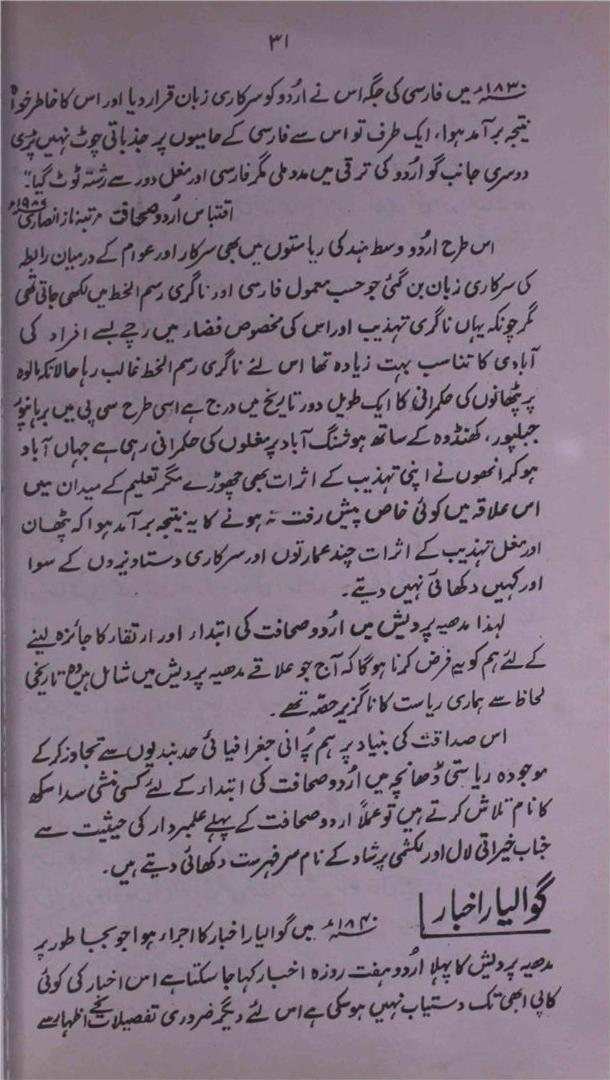 ۳۱
۱۸۳۰ء میں فارسی کی جگہ اس نے اردو کو سرکاری زبان قرار دیا اور اس کا خاطر خواہ
نتیجہ برآمد ہوا، ایک طرف تو اس سے فارسی کے حامیوں پر جذباتی چوٹ نہیں پڑی
دوسری جانب گو اردو کی ترقی میں مدد ملی مگر فارسی اور مغل دور سے رشتہ ٹوٹ گیا"۔
اقتباس اردو صحافت مرتبہ ناز انصاری ۱۹۸۶ء
اس طرح اردو وسط ہند کی ریاستوں میں بھی سرکار اور عوام کے درمیان رابطہ
کی سرکاری زبان بن گئی جو حسب معمول فارسی اور ناگری رسم الخط میں لکھی جاتی تھی
مگر چونکہ یہاں ناگری تہذیب اور اس کی مخصوص فضاء میں رچے بسے افراد کی
آبادی کا تناسب بہت زیادہ تھا اس لئے ناگری رسم الخط غالب رہا حالانکہ مالوہ
پر پٹھانوں کی حکمرانی کا ایک طویل دور تاریخ میں درج ہے اسی طرح سی پی میں برہانپور
جبلپور، کھنڈوہ کے ساتھ ہوشنگ آباد پر مغلوں کی حکمرانی رہی ہے جہاں آباد
ہوکر انھوں نے اپنی تہذیب کے اثرات بھی چھوڑے مگر تعلیم کے میدان میں
اس علاقہ میں کوئی خاص پیش رفت نہ ہونے کا یہ نتیجہ برآمد ہوا کہ پٹھان
اور مغل تہذیب کے اثرات چند عمارتوں اور سرکاری دستاویزوں کے سوا
اور کہیں دکھائی نہیں دیتے۔
لہذا مدھیہ پردیش میں اردو صحافت کی ابتداء اور ارتقاء کا جائزہ لینے
کے لئے ہم کو یہ فرض کرنا ہوگا کہ آج جو علاقے مدھیہ پردیش میں شامل ہیں وہ تاریخی
لحاظ سے ہماری ریاست کا ناگزیر حصہ تھے۔
اس صداقت کی بنیاد پر ہم پرانی جغرافیائی حدبندیوں سے تجاوز کرکے
موجودہ ریاستی ڈھانچہ میں اردو صحافت کی ابتداء کے لئے کسی منشی سداسکھ
کا نام تلاش کرتے ہیں تو عملاً اردو صحافت کے پہلے علمبردار کی حیثیت سے
جناب خیراتی لال اور لکشمی پرشاد کے نام سرفہرست دکھائی دیتے ہیں۔
گوالیار اخبار
۱۸۴۰ء میں گوالیار اخبار کا اجراء ہوا جو بجا طور پر
مدھیہ پردیش کا پہلا اردو ہفت روزہ اخبار کہا جا سکتا ہے اس اخبار کی کوئی
کاپی ابھی تک دستیاب نہیں ہو سکی ہے اس لئے دیگر ضروری تفصیلات کے اظہار سے